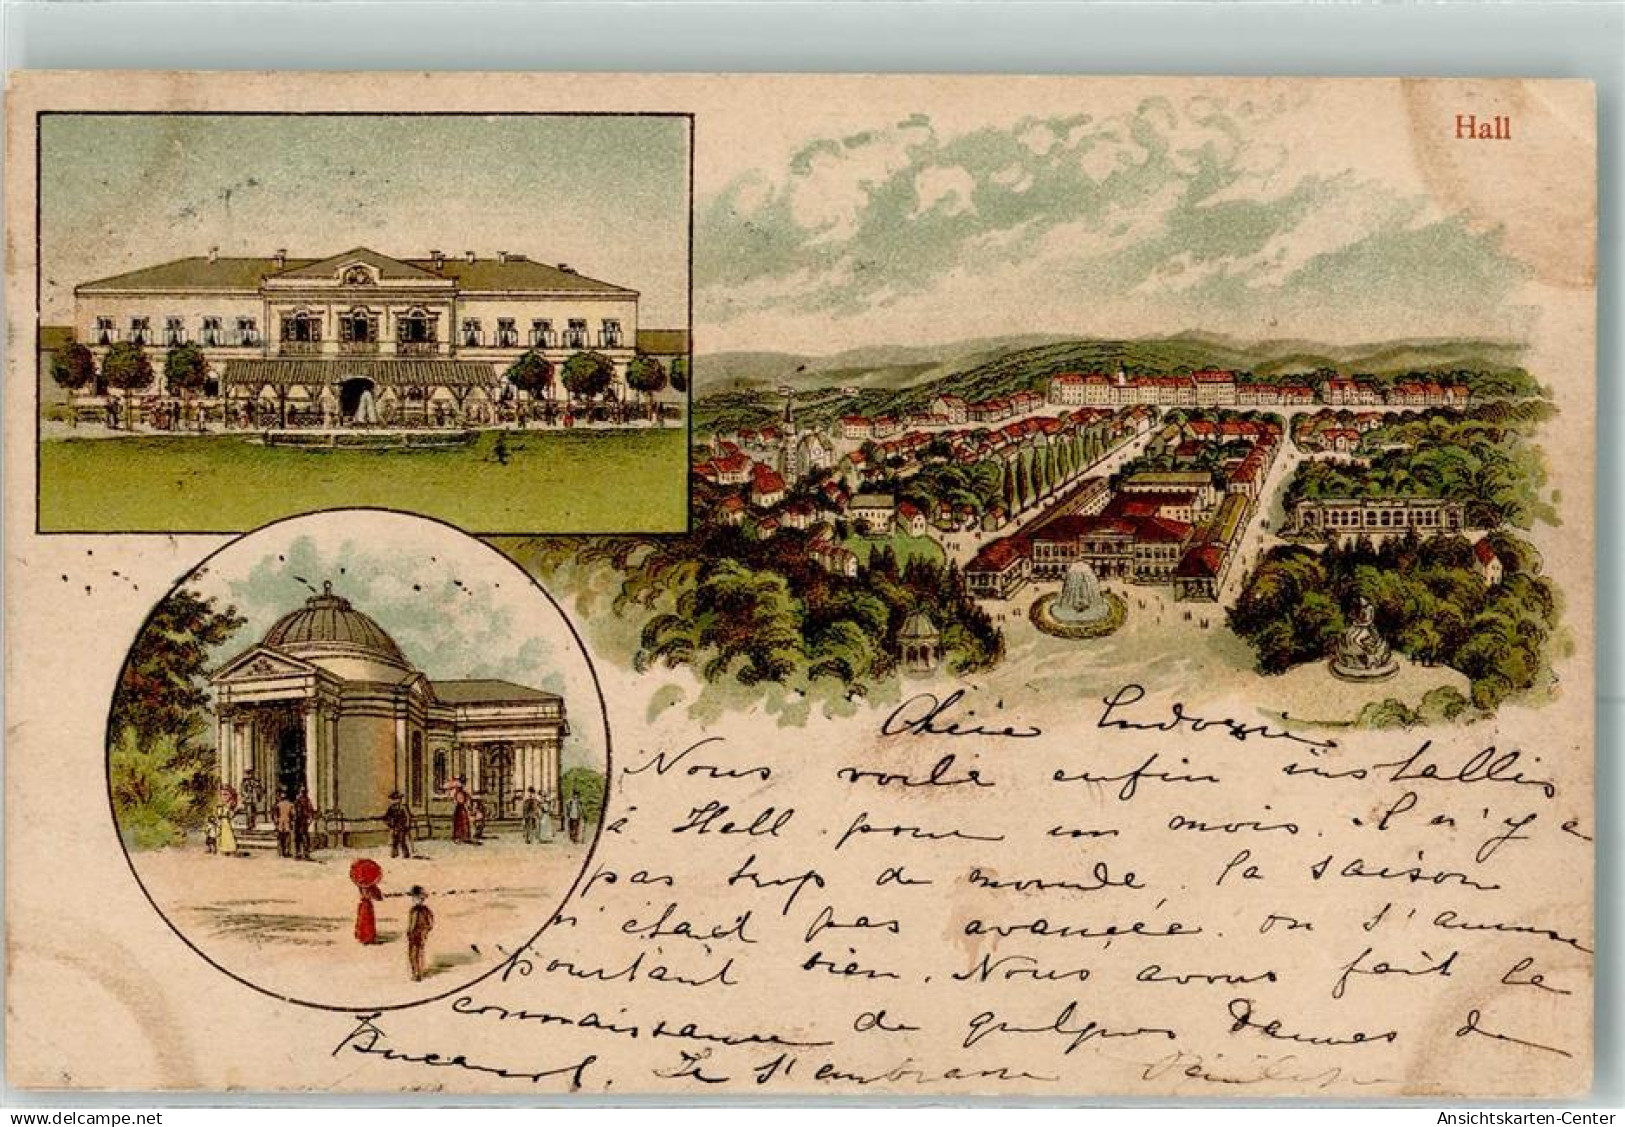 Hall
Chère
Nous voilà enfin installés
à Hall pour un mois. Il n'y a
pas trop de monde. la saison
n'étant pas avancée. on s'amuse
pourtant bien. Nous avons fait la
connaissance de quelques Dames de
Bucarest. Je t'embrasse
Ansichtskarten-Center